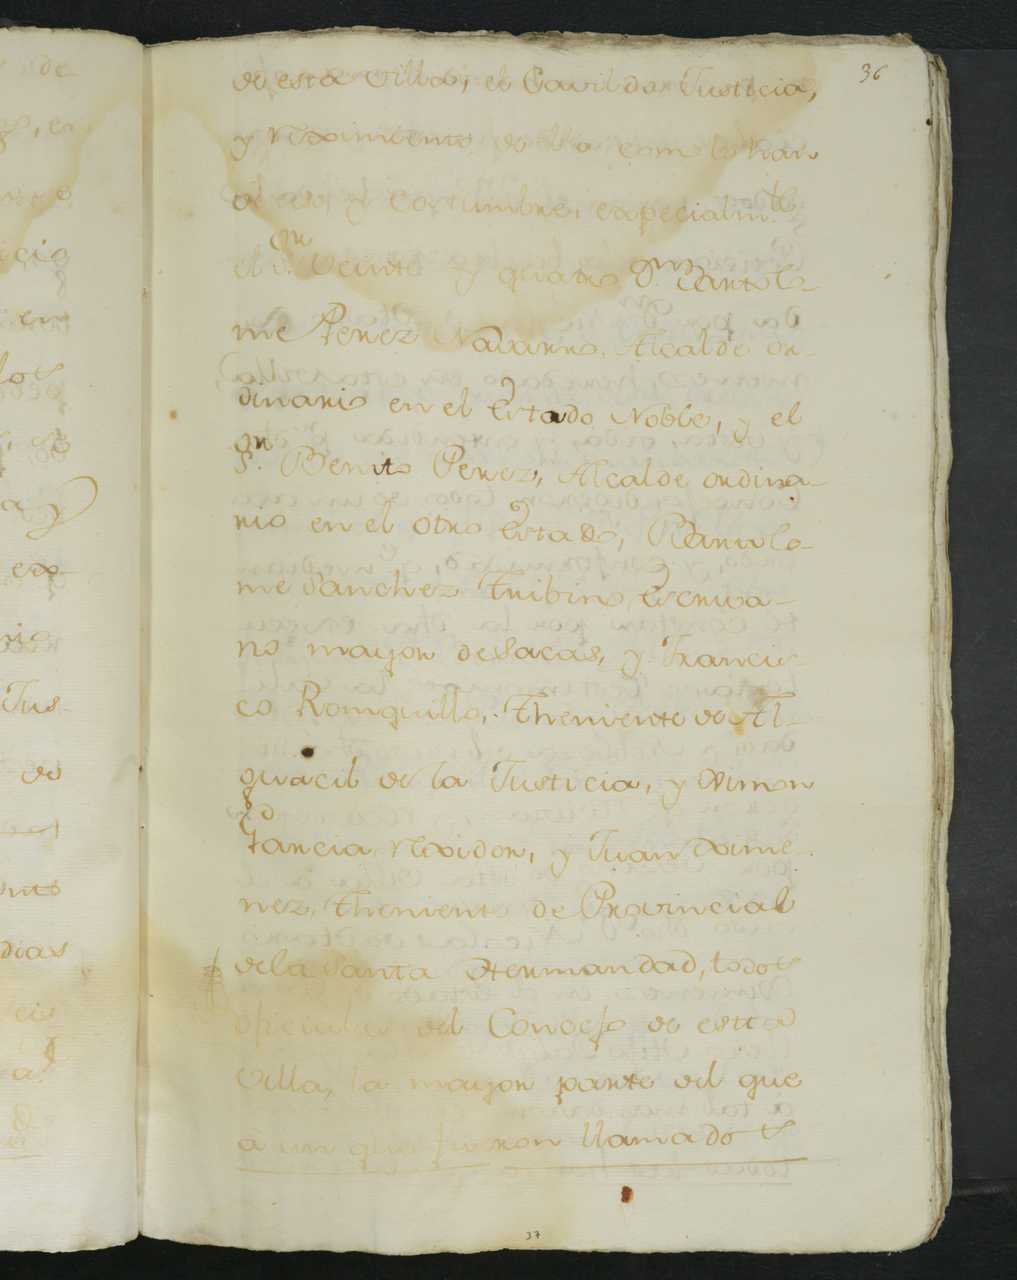 36
de esta Villa, el Cavildo Justicia,
y reximiento de lla como lo han
de uso, y costumbre, especialm.te
el S.or Veinte y quatro S.or Bartolo-
me Perez Navarro, Alcalde or-
dinario en el Estado Noble, y el
S.or Benito Perez, Alcalde ordina-
rio en el otro Estado, Bartolo-
me Sanchez Tribiño Escriva-
no mayor de Sacas, y Francis-
co Ronquillo, Theniente de Al-
guacil de la Justicia, y Simon
Garcia, rexidor, y Juan Xime-
nez, Theniente de Provincial
dela Santa Hermandad, todos
oficiales del Concejo de estta
Villa, la mayor parte del que
â un que fueron llamados
37